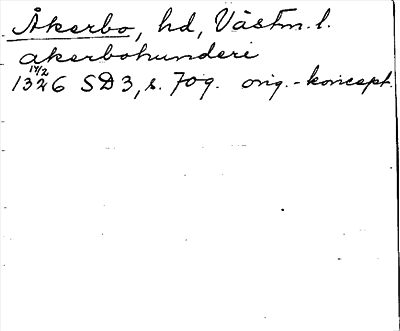 Åkerbo, hd, Västm. l.
akerbohundæri
17/2
1326 SD 3, s. 709. orig.-koncept.